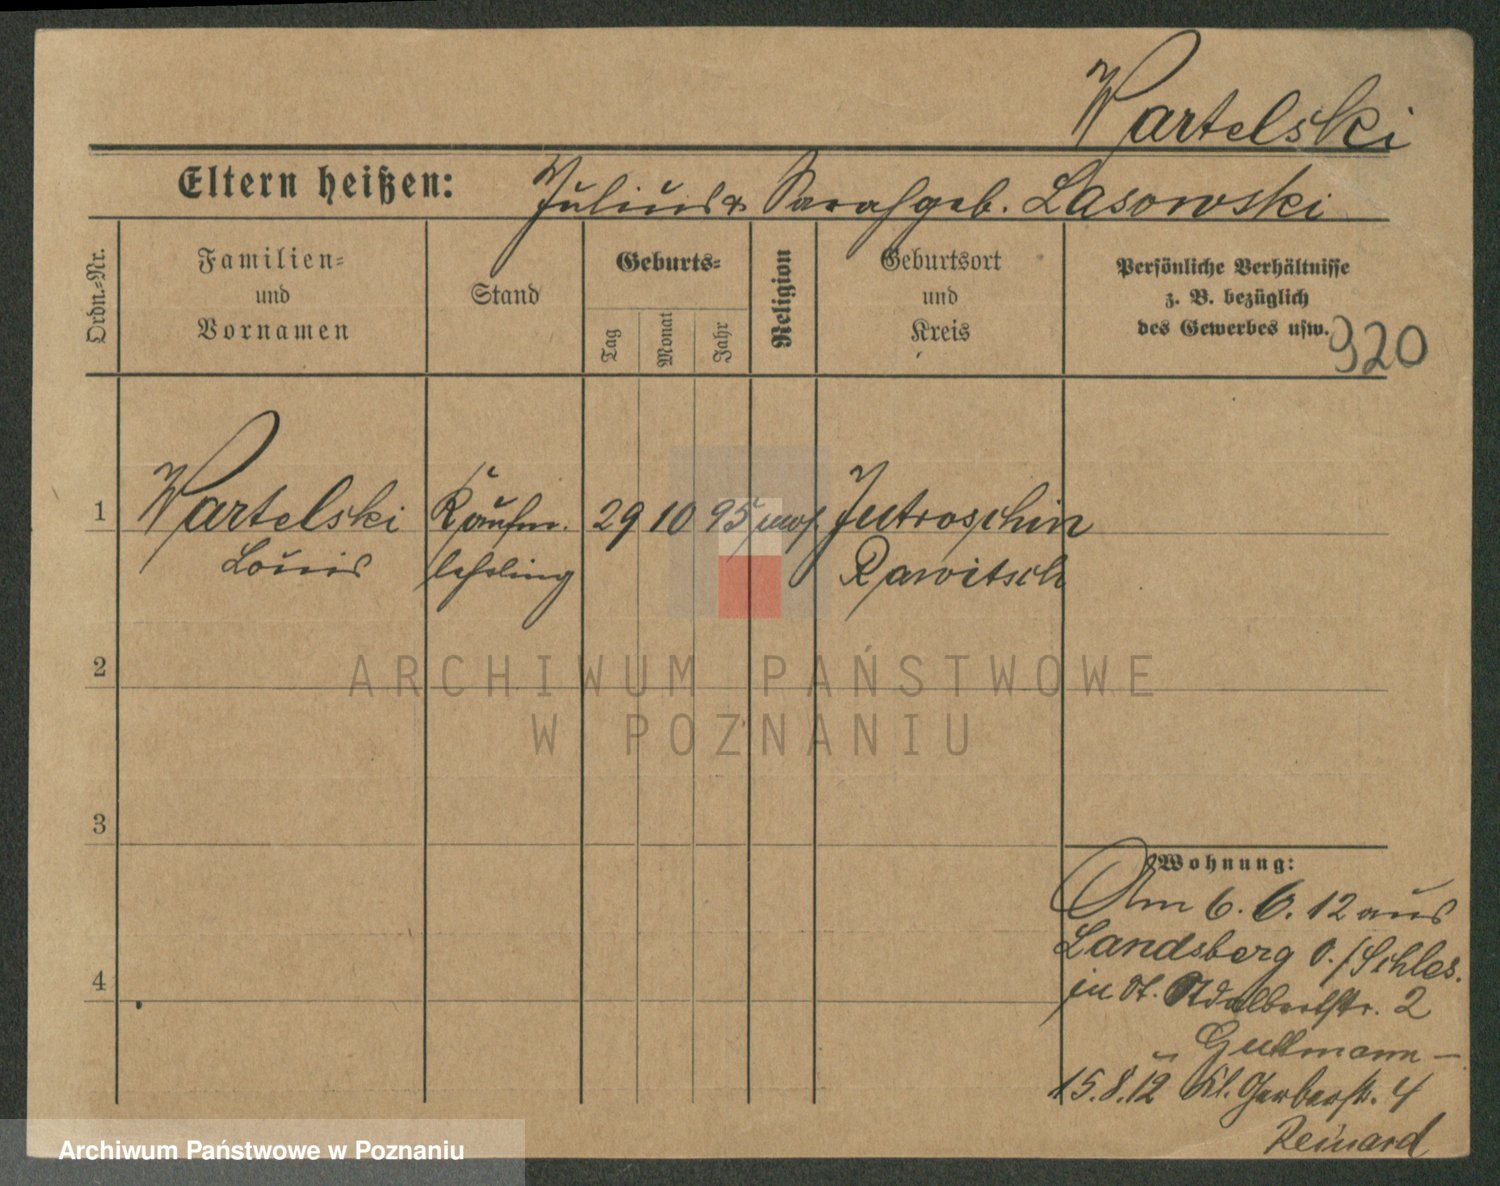 Wartelski
Eltern heißen: Julius & Sarah geb. Lasowski
Ordn.-Nr.
Familien-
und
Vornamen
Stand
Geburts-
Tag
Monat
Jahr
Religion
Geburtsort
und
Kreis
Persönliche Verhältnisse
z. B. bezüglich
des Gewerbes usw.
920
1 Wartelski Kaufm. 29 10 95 mos. Jutroschin
Louis lehrling Rawitsch
2
ARCHIWUM PAŃSTWOWE
W POZNANIU
3
Wohnung:
Am 6. 6. 12 aus
Landsberg O./Schles.
4
in St. Adalbertstr. 2
Guttmann –
15.8.12 Kl. Gerberstr. 4
Reinard
Archiwum Państwowe w Poznaniu